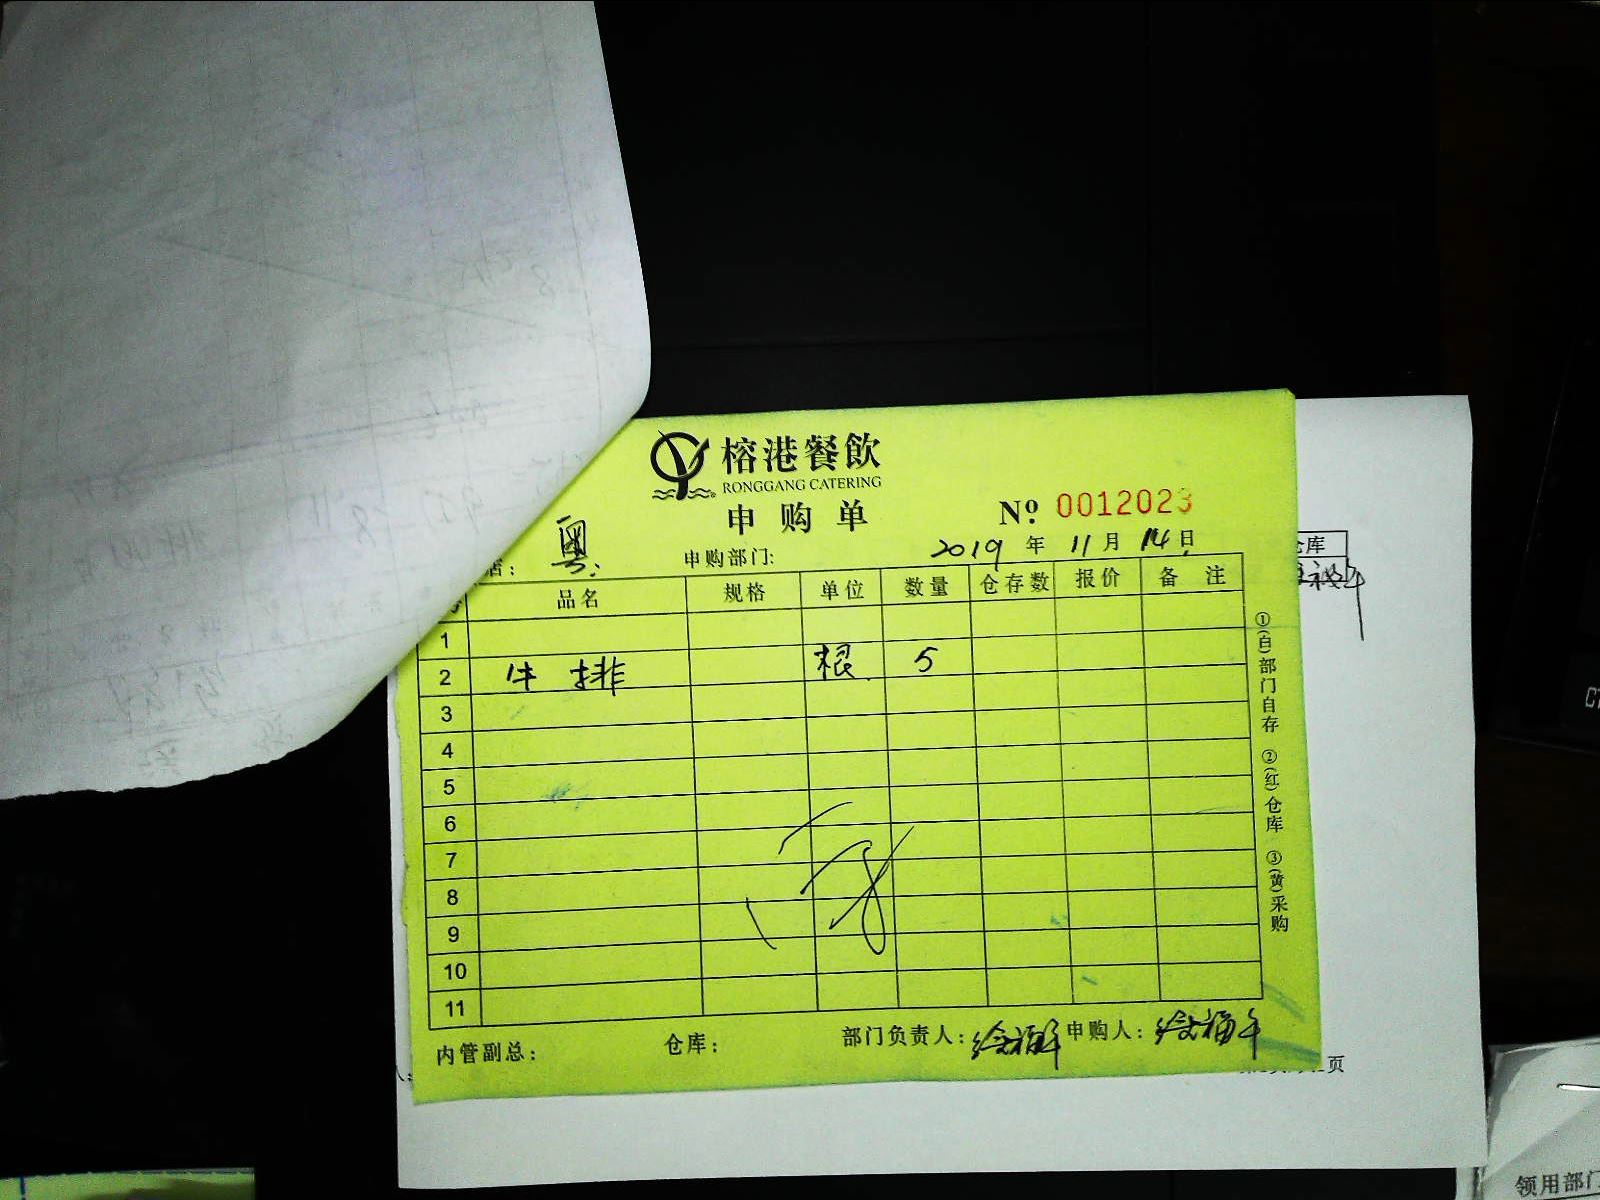 榕港餐飲
RONGGANG CATERING
申购单
Nº 0012023
店: 粤 申购部门: 2019 年 11 月 14 日
品名 规格 单位 数量 仓存数 报价 备 注
1
2 牛排 根 5
3
4
5
6
7
8
9
10
11
①(白)部门自存 ②(红)仓库 ③(黄)采购
内管副总: 仓库: 部门负责人: 申购人:
仓库
页
领用部门